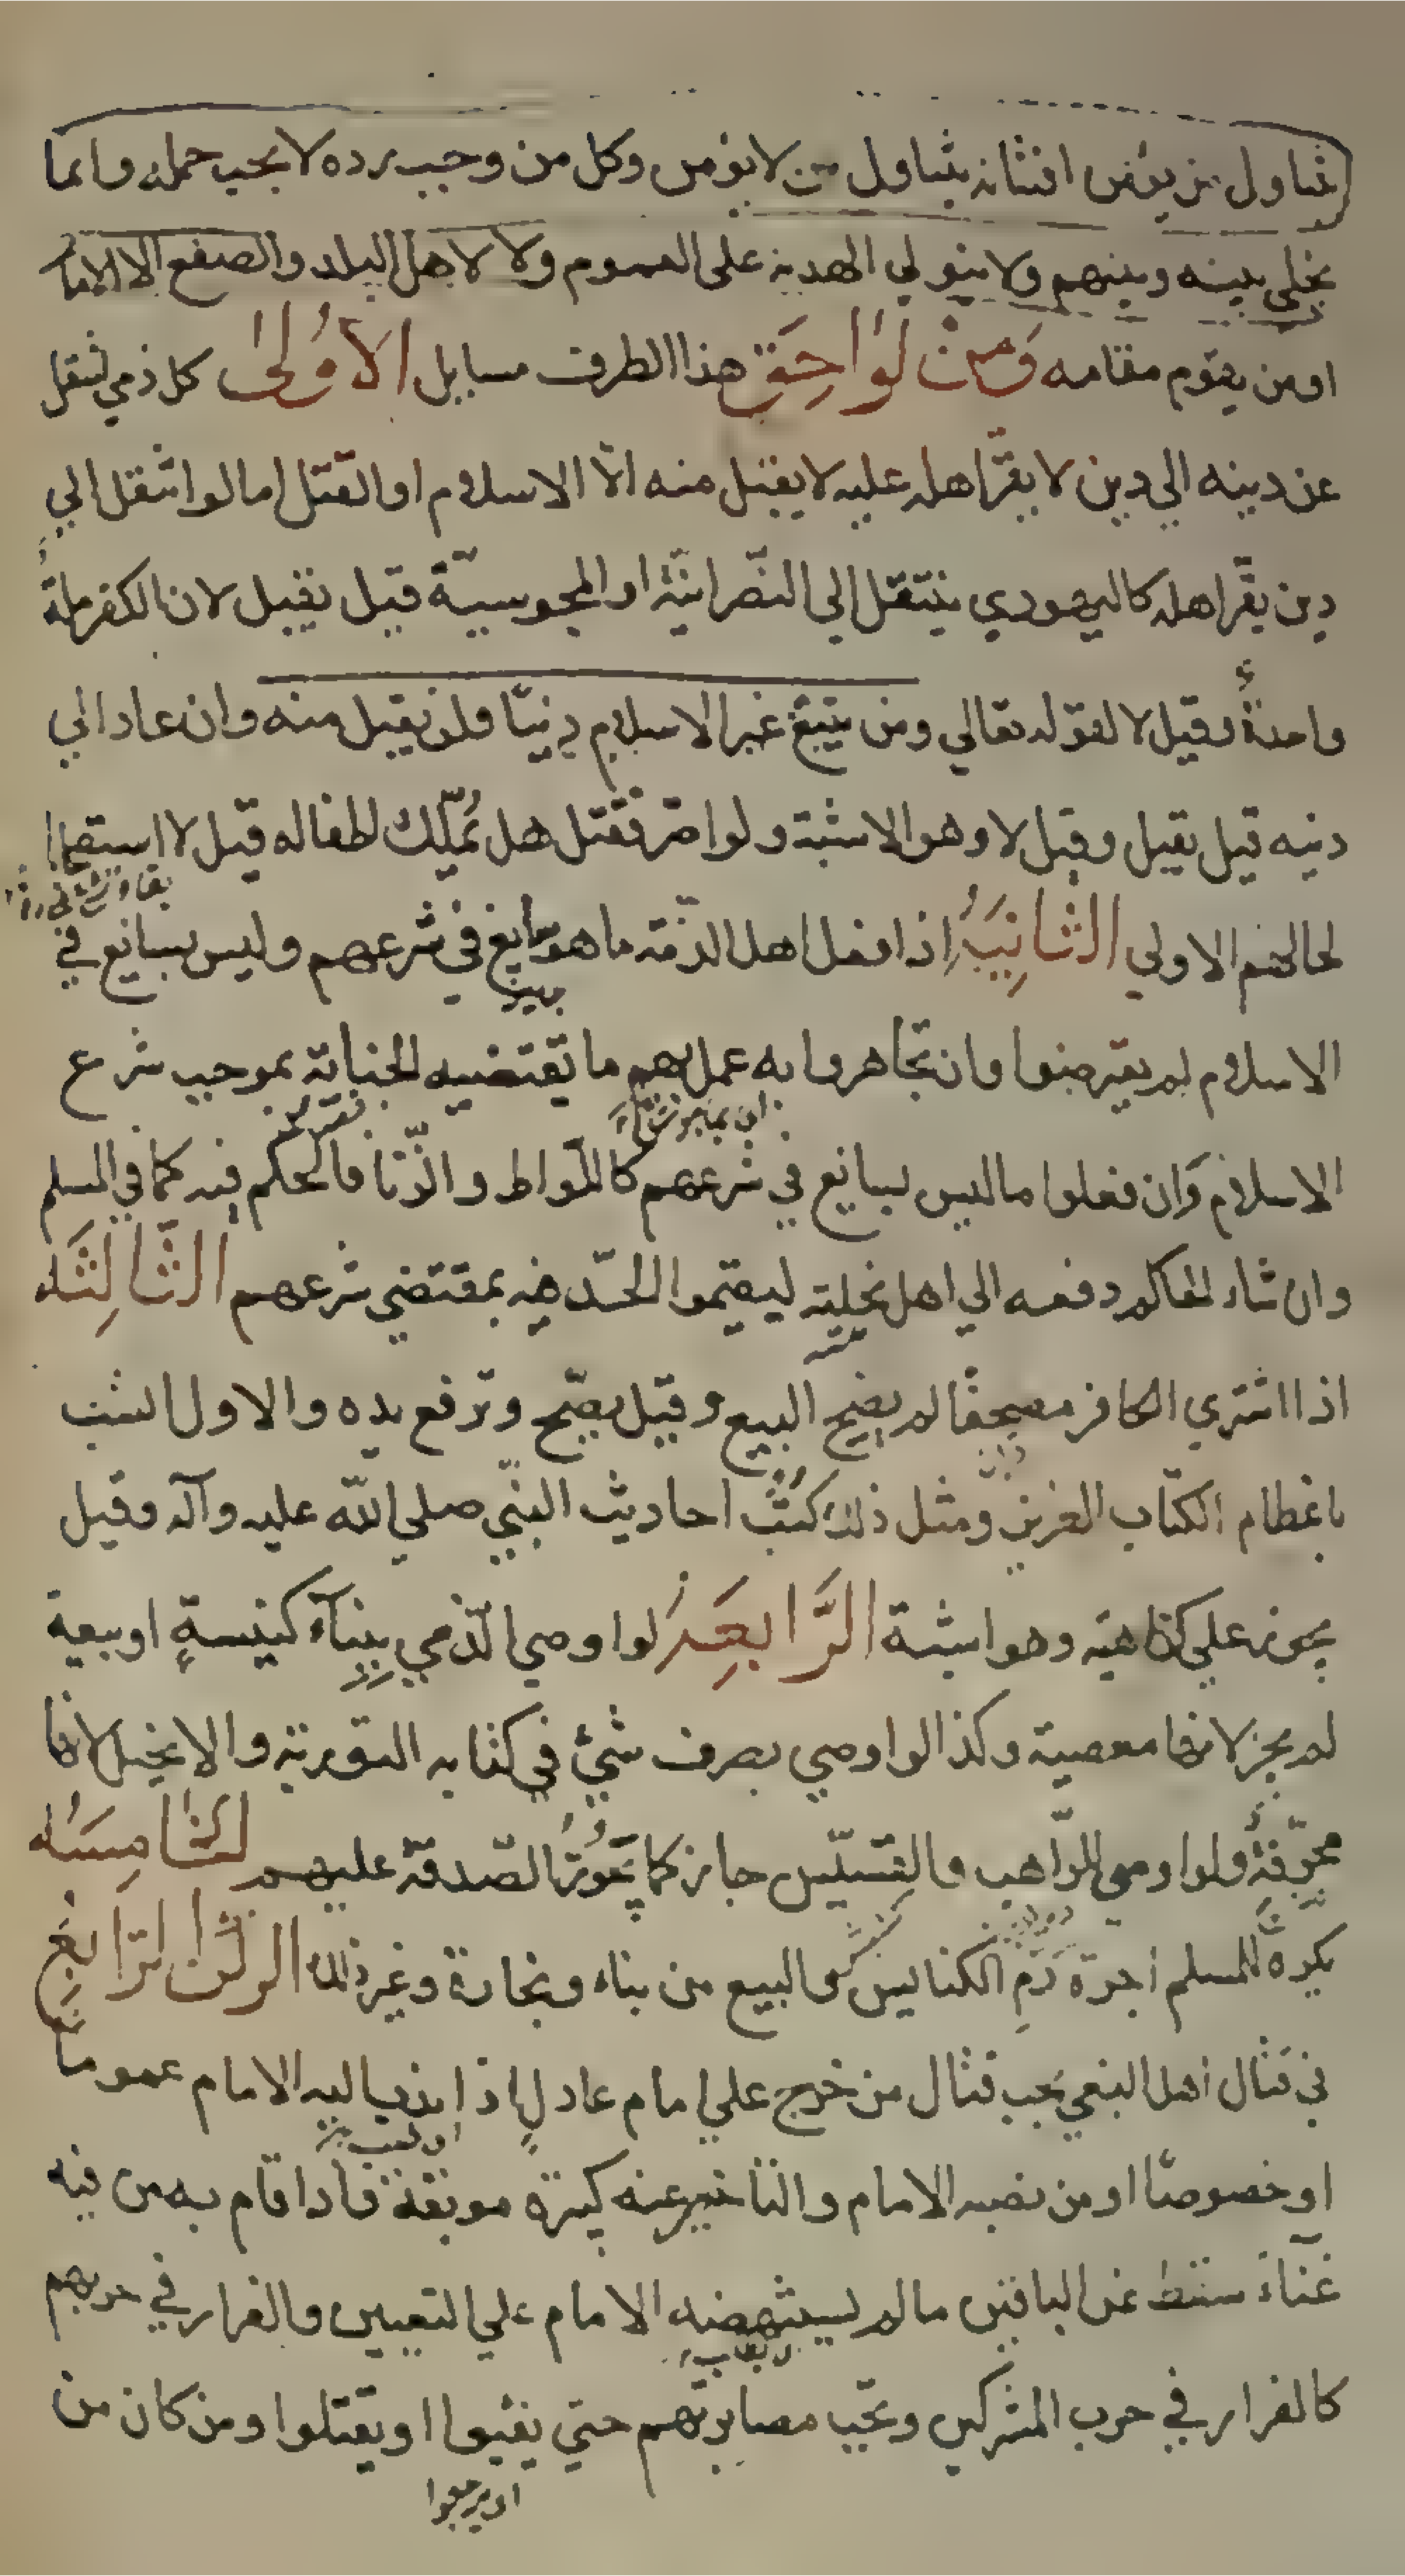 تناول من يؤمن افتتانه يتناول من لا يؤمن وكل من وجب رده لا يجب حمله وانما
يخلي بينه وبينهم ولا يتولي الهدنة على العموم ولا لاهل البلد والصقع الا الامام
او من يقوم مقامه وَمِنْ لَوَاحِقِ هذا الطرف مسايل الاُولىٰ كل ذمي انتقل
عن دينه الي دين لا يقرّ اهله عليه لا يقبل منه الّا الاسلام او القتل اما لو انتقل الي
دين يقرّ اهله كاليهودي ينتقل الي النّصرانيّة او المجوسيّة قيل يقبل لان الكفر ملة
واحدةٌ وقيل لا لقوله تعالي ومن يبتغ غير الاسلام دينًا فلن يقبل منه وان عاد الي
دينه قيل يقبل وقيل لا وهو الاشبه ولو اصرّ فقتل هل يُملّك اطفاله قيل لا استصحابا
لحالهم الاولي الثَّانِيَةُ اذا فعل اهل الذّمة ما هو سايغ في شرعهم وليس بسايغ في
الاسلام لم يعترضوا وان تجاهروا به عمل بهم ما تقتضيه الجناية بموجب شرع
الاسلام وَان فعلوا ما ليس بسايغ في شرعهم كاللّواط والزّنا فالحكم فيه كما في المسلم
وان شاء الحاكم دفعه الي اهل نحلته ليقيموا الحدّ فيه بمقتضي شرعهم الثَّالِثَه
اذا اشتري الكافر مصحفًا لم يصح البيع وقيل يصّح وترفع يده والاول انسب
باعظام الكتاب العزيز ومثل ذلك كتب احاديث النبّي صلي اللّه عليه وآله وقيل
يجوز علي كراهية وهو اشبه الرَّابِعَة لو اوصي الذّمي ببنآء كنيسةٍ او بيعة
لم يجز لانها معصية وكذا لو اوصي بصرف شئ في كتابه التورية والانجيل لانها
محرّفةٌ ولو اوصي للرّاهب والقسّيس جاز كما يجوز الصّدقة عليهم الخَامِسَه
يكره للمسلم اجرة رَمِّ الكنايس والبيع من بناء ونجارة وغير ذلك الركن الرَّابِع
في قتال اهل البغي يجب قتال من خرج علي امام عادلٍ اذا ندب اليه الامام عمومًا
او خصوصًا او من نصبه الامام والتاخير عنه كبيرة موبقة فاذا قام به من فيه
غنآء سقط عن الباقين ما لم يستنهضه الامام علي التعيين والفرار في حربهم
كالفرار في حرب المشركين وتجب مصابرتهم حتي يفيئوا او يقتلوا ومن كان من
او يرجعوا